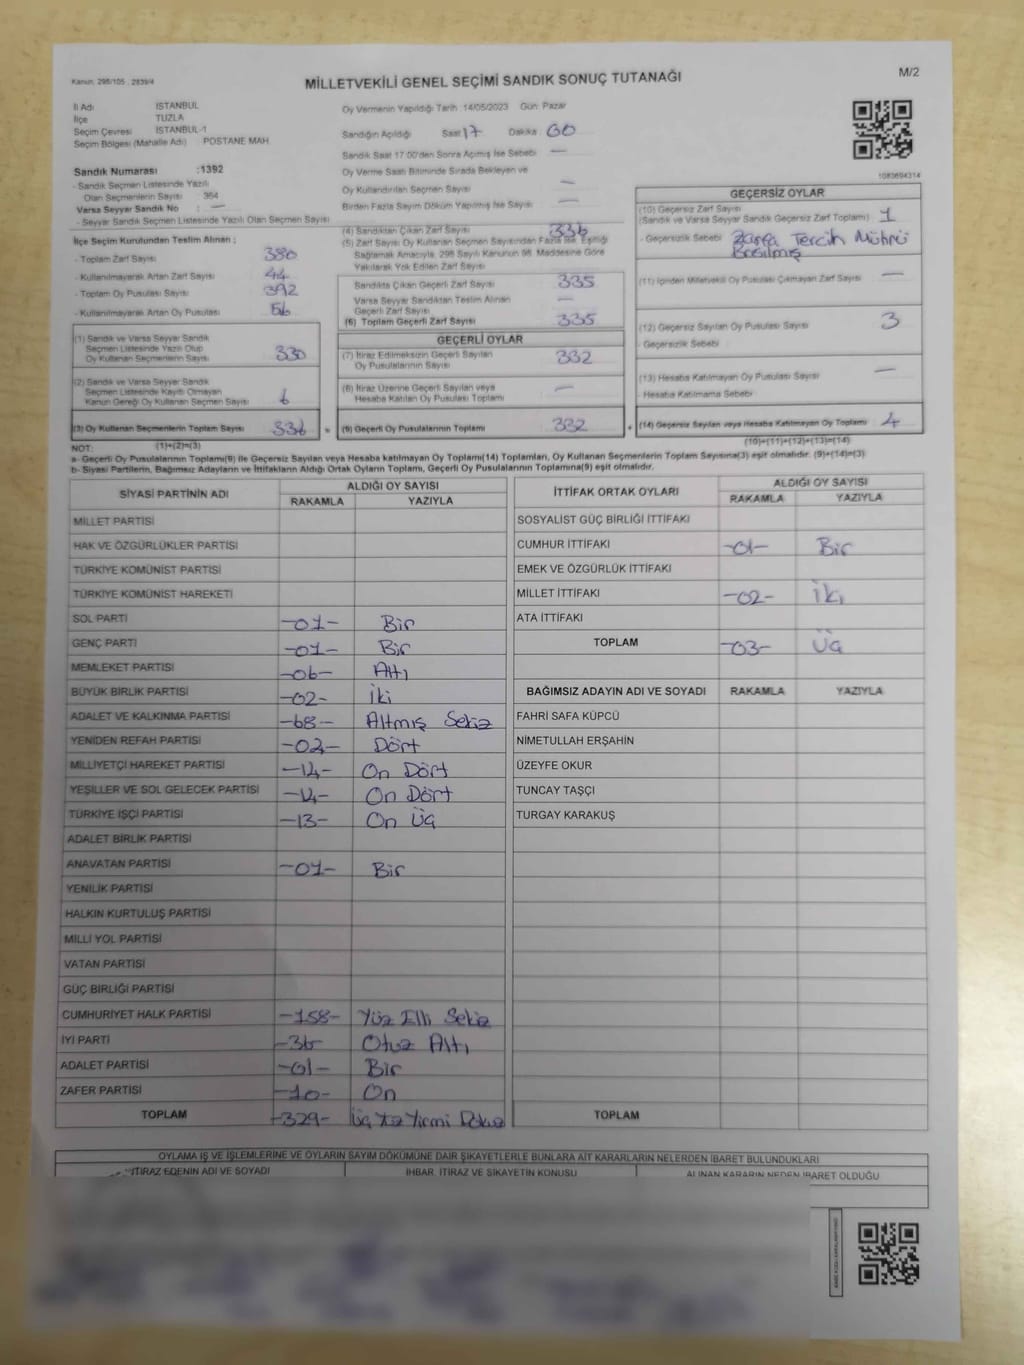 Kanun: 298/105 , 2839/4
MİLLETVEKİLİ GENEL SEÇİMİ SANDIK SONUÇ TUTANAĞI
M/2
İl Adı İSTANBUL
İlçe TUZLA
Seçim Çevresi İSTANBUL-1
Seçim Bölgesi (Mahalle Adı) POSTANE MAH
Oy Vermenin Yapıldığı Tarih :14/05/2023 Gün: Pazar
Sandığın Açıldığı Saat 17 Dakika : 00
Sandık Saat 17:00'den Sonra Açılmış İse Sebebi —
Oy Verme Saati Bitiminde Sırada Bekleyen ve
Oy Kullandırılan Seçmen Sayısı —
Birden Fazla Sayım Döküm Yapılmış İse Sayısı —
1083694314
Sandık Numarası :1392
- Sandık Seçmen Listesinde Yazılı
Olan Seçmenlerin Sayısı 364
Varsa Seyyar Sandık No : —
- Seyyar Sandık Seçmen Listesinde Yazılı Olan Seçmen Sayısı
İlçe Seçim Kurulundan Teslim Alınan ;
- Toplam Zarf Sayısı 380
- Kullanılmayarak Artan Zarf Sayısı 44
- Toplam Oy Pusulası Sayısı 392
- Kullanılmayarak Artan Oy Pusulası 56
(1) Sandık ve Varsa Seyyar Sandık
Seçmen Listesinde Yazılı Olup
Oy Kullanan Seçmenlerin Sayısı 330
(2) Sandık ve Varsa Seyyar Sandık
Seçmen Listesinde Kayıtlı Olmayan
Kanun Gereği Oy Kullanan Seçmen Sayısı 6
(3) Oy Kullanan Seçmenlerin Toplam Sayısı 336 =
(4) Sandıktan Çıkan Zarf Sayısı 336
(5) Zarf Sayısı Oy Kullanan Seçmen Sayısından Fazla İse, Eşitliği
Sağlamak Amacıyla, 298 Sayılı Kanunun 98. Maddesine Göre
Yakılarak Yok Edilen Zarf Sayısı
Sandıkta Çıkan Geçerli Zarf Sayısı 335
Varsa Seyyar Sandıktan Teslim Alınan
Geçerli Zarf Sayısı —
(6) Toplam Geçerli Zarf Sayısı 335
GEÇERLİ OYLAR
(7) İtiraz Edilmeksizin Geçerli Sayılan
Oy Pusulalarının Sayısı 332
(8) İtiraz Üzerine Geçerli Sayılan veya
Hesaba Katılan Oy Pusulası Toplamı —
(9) Geçerli Oy Pusulalarının Toplamı 332 +
GEÇERSİZ OYLAR
(10) Geçersiz Zarf Sayısı
(Sandık ve Varsa Seyyar Sandık Geçersiz Zarf Toplamı) 1
- Geçersizlik Sebebi : Zarfa Tercih Mührü
Basılmış
(11) İçinden Milletvekili Oy Pusulası Çıkmayan Zarf Sayısı —
(12) Geçersiz Sayılan Oy Pusulası Sayısı 3
- Geçersizlik Sebebi :
(13) Hesaba Katılmayan Oy Pusulası Sayısı —
- Hesaba Katılmama Sebebi :
(14) Geçersiz Sayılan veya Hesaba Katılmayan Oy Toplamı 4
NOT: (1)+(2)=(3) (10)+(11)+(12)+(13)=(14)
a- Geçerli Oy Pusulalarının Toplamı(9) ile Geçersiz Sayılan veya Hesaba katılmayan Oy Toplamı(14) Toplamları, Oy Kullanan Seçmenlerin Toplam Sayısına(3) eşit olmalıdır. (9)+(14)=(3)
b- Siyasi Partilerin, Bağımsız Adayların ve İttifakların Aldığı Ortak Oyların Toplamı, Geçerli Oy Pusulalarının Toplamına(9) eşit olmalıdır.
SİYASİ PARTİNİN ADI ALDIĞI OY SAYISI
RAKAMLA YAZIYLA
MİLLET PARTİSİ
HAK VE ÖZGÜRLÜKLER PARTİSİ
TÜRKİYE KOMÜNİST PARTİSİ
TÜRKİYE KOMÜNİST HAREKETİ
SOL PARTİ -01- Bir
GENÇ PARTİ -01- Bir
MEMLEKET PARTİSİ -06- Altı
BÜYÜK BİRLİK PARTİSİ -02- İki
ADALET VE KALKINMA PARTİSİ -68- Altmış Sekiz
YENİDEN REFAH PARTİSİ -04- Dört
MİLLİYETÇİ HAREKET PARTİSİ -14- On Dört
YEŞİLLER VE SOL GELECEK PARTİSİ -14- On Dört
TÜRKİYE İŞÇİ PARTİSİ -13- On Üç
ADALET BİRLİK PARTİSİ
ANAVATAN PARTİSİ -01- Bir
YENİLİK PARTİSİ
HALKIN KURTULUŞ PARTİSİ
MİLLİ YOL PARTİSİ
VATAN PARTİSİ
GÜÇ BİRLİĞİ PARTİSİ
CUMHURİYET HALK PARTİSİ -158- Yüz Elli Sekiz
İYİ PARTİ -36- Otuz Altı
ADALET PARTİSİ -01- Bir
ZAFER PARTİSİ -10- On
TOPLAM -329- Üç Yüz Yirmi Dokuz
İTTİFAK ORTAK OYLARI ALDIĞI OY SAYISI
RAKAMLA YAZIYLA
SOSYALİST GÜÇ BİRLİĞİ İTTİFAKI
CUMHUR İTTİFAKI -01- Bir
EMEK VE ÖZGÜRLÜK İTTİFAKI
MİLLET İTTİFAKI -02- İki
ATA İTTİFAKI
TOPLAM -03- Üç
BAĞIMSIZ ADAYIN ADI VE SOYADI RAKAMLA YAZIYLA
FAHRİ SAFA KÜPCÜ
NİMETULLAH ERŞAHİN
ÜZEYFE OKUR
TUNCAY TAŞÇI
TURGAY KARAKUŞ
TOPLAM
OYLAMA İŞ VE İŞLEMLERİNE VE OYLARIN SAYIM DÖKÜMÜNE DAİR ŞİKAYETLERLE BUNLARA AİT KARARLARIN NELERDEN İBARET BULUNDUKLARI
İTİRAZ EDENİN ADI VE SOYADI İHBAR, İTİRAZ VE ŞİKAYETİN KONUSU ALINAN KARARIN NEDEN İBARET OLDUĞU